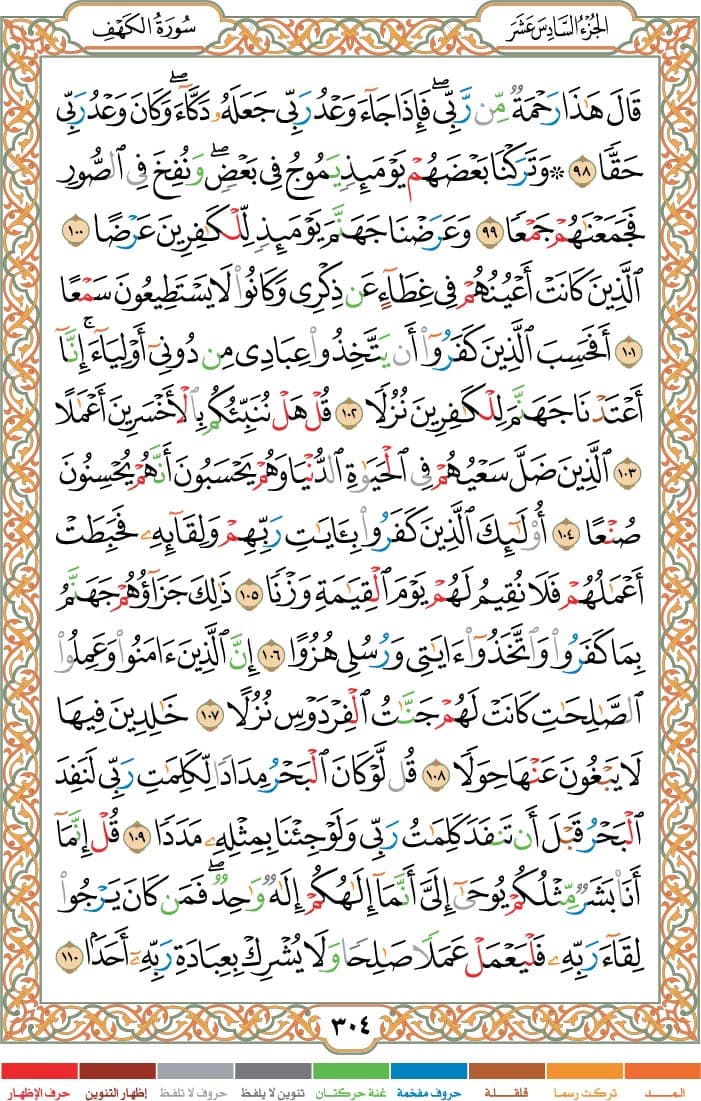 الجزء السادس عشر
سورة الكهف
قَالَ هَٰذَا رَحْمَةٌ مِّن رَّبِّي ۖ فَإِذَا جَاءَ وَعْدُ رَبِّي جَعَلَهُ دَكَّاءَ ۖ وَكَانَ وَعْدُ رَبِّي
حَقًّا ٩٨ ۞ وَتَرَكْنَا بَعْضَهُمْ يَوْمَئِذٍ يَمُوجُ فِي بَعْضٍ ۖ وَنُفِخَ فِي الصُّورِ
فَجَمَعْنَاهُمْ جَمْعًا ٩٩ وَعَرَضْنَا جَهَنَّمَ يَوْمَئِذٍ لِّلْكَافِرِينَ عَرْضًا ١٠٠
الَّذِينَ كَانَتْ أَعْيُنُهُمْ فِي غِطَاءٍ عَن ذِكْرِي وَكَانُوا لَا يَسْتَطِيعُونَ سَمْعًا
١٠١ أَفَحَسِبَ الَّذِينَ كَفَرُوا أَن يَتَّخِذُوا عِبَادِي مِن دُونِي أَوْلِيَاءَ ۚ إِنَّا
أَعْتَدْنَا جَهَنَّمَ لِلْكَافِرِينَ نُزُلًا ١٠٢ قُلْ هَلْ نُنَبِّئُكُم بِالْأَخْسَرِينَ أَعْمَالًا
١٠٣ الَّذِينَ ضَلَّ سَعْيُهُمْ فِي الْحَيَاةِ الدُّنْيَا وَهُمْ يَحْسَبُونَ أَنَّهُمْ يُحْسِنُونَ
صُنْعًا ١٠٤ أُولَٰئِكَ الَّذِينَ كَفَرُوا بِآيَاتِ رَبِّهِمْ وَلِقَائِهِ فَحَبِطَتْ
أَعْمَالُهُمْ فَلَا نُقِيمُ لَهُمْ يَوْمَ الْقِيَامَةِ وَزْنًا ١٠٥ ذَٰلِكَ جَزَاؤُهُمْ جَهَنَّمُ
بِمَا كَفَرُوا وَاتَّخَذُوا آيَاتِي وَرُسُلِي هُزُوًا ١٠٦ إِنَّ الَّذِينَ آمَنُوا وَعَمِلُوا
الصَّالِحَاتِ كَانَتْ لَهُمْ جَنَّاتُ الْفِرْدَوْسِ نُزُلًا ١٠٧ خَالِدِينَ فِيهَا
لَا يَبْغُونَ عَنْهَا حِوَلًا ١٠٨ قُل لَّوْ كَانَ الْبَحْرُ مِدَادًا لِّكَلِمَاتِ رَبِّي لَنَفِدَ
الْبَحْرُ قَبْلَ أَن تَنفَدَ كَلِمَاتُ رَبِّي وَلَوْ جِئْنَا بِمِثْلِهِ مَدَدًا ١٠٩ قُلْ إِنَّمَا
أَنَا بَشَرٌ مِّثْلُكُمْ يُوحَىٰ إِلَيَّ أَنَّمَا إِلَٰهُكُمْ إِلَٰهٌ وَاحِدٌ ۖ فَمَن كَانَ يَرْجُوا
لِقَاءَ رَبِّهِ فَلْيَعْمَلْ عَمَلًا صَالِحًا وَلَا يُشْرِكْ بِعِبَادَةِ رَبِّهِ أَحَدًا ١١٠
٣٠٤
المــد
تركت رسما
قلقلة
حروف مفخمة
غنة حركتان
تنوين لا يلفظ
حروف لا تلفظ
إظهار التنوين
حرف الإظهار